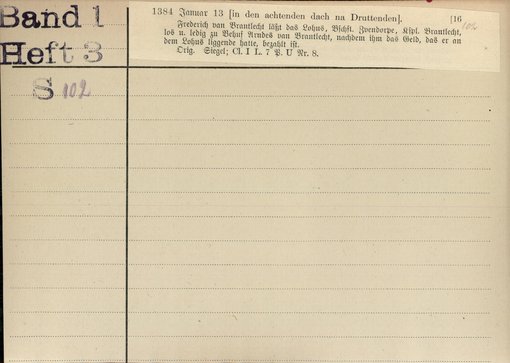 Band 1
Heft 3
S 102
1384 Januar 13 [in den achtenden dach na Druttenden]. [16
Frederich van Brantlecht läßt das Lohus, Bichst. Zvendorpe, Kspl. Brantlecht,
los u. ledig zu Behuf Arndes van Brantlecht, nachdem ihm das Geld, das er an
dem Lohus liggende hatte, bezahlt ist.
Orig. Siegel; Cl. I L. 7 P. U Nr. 8.
102